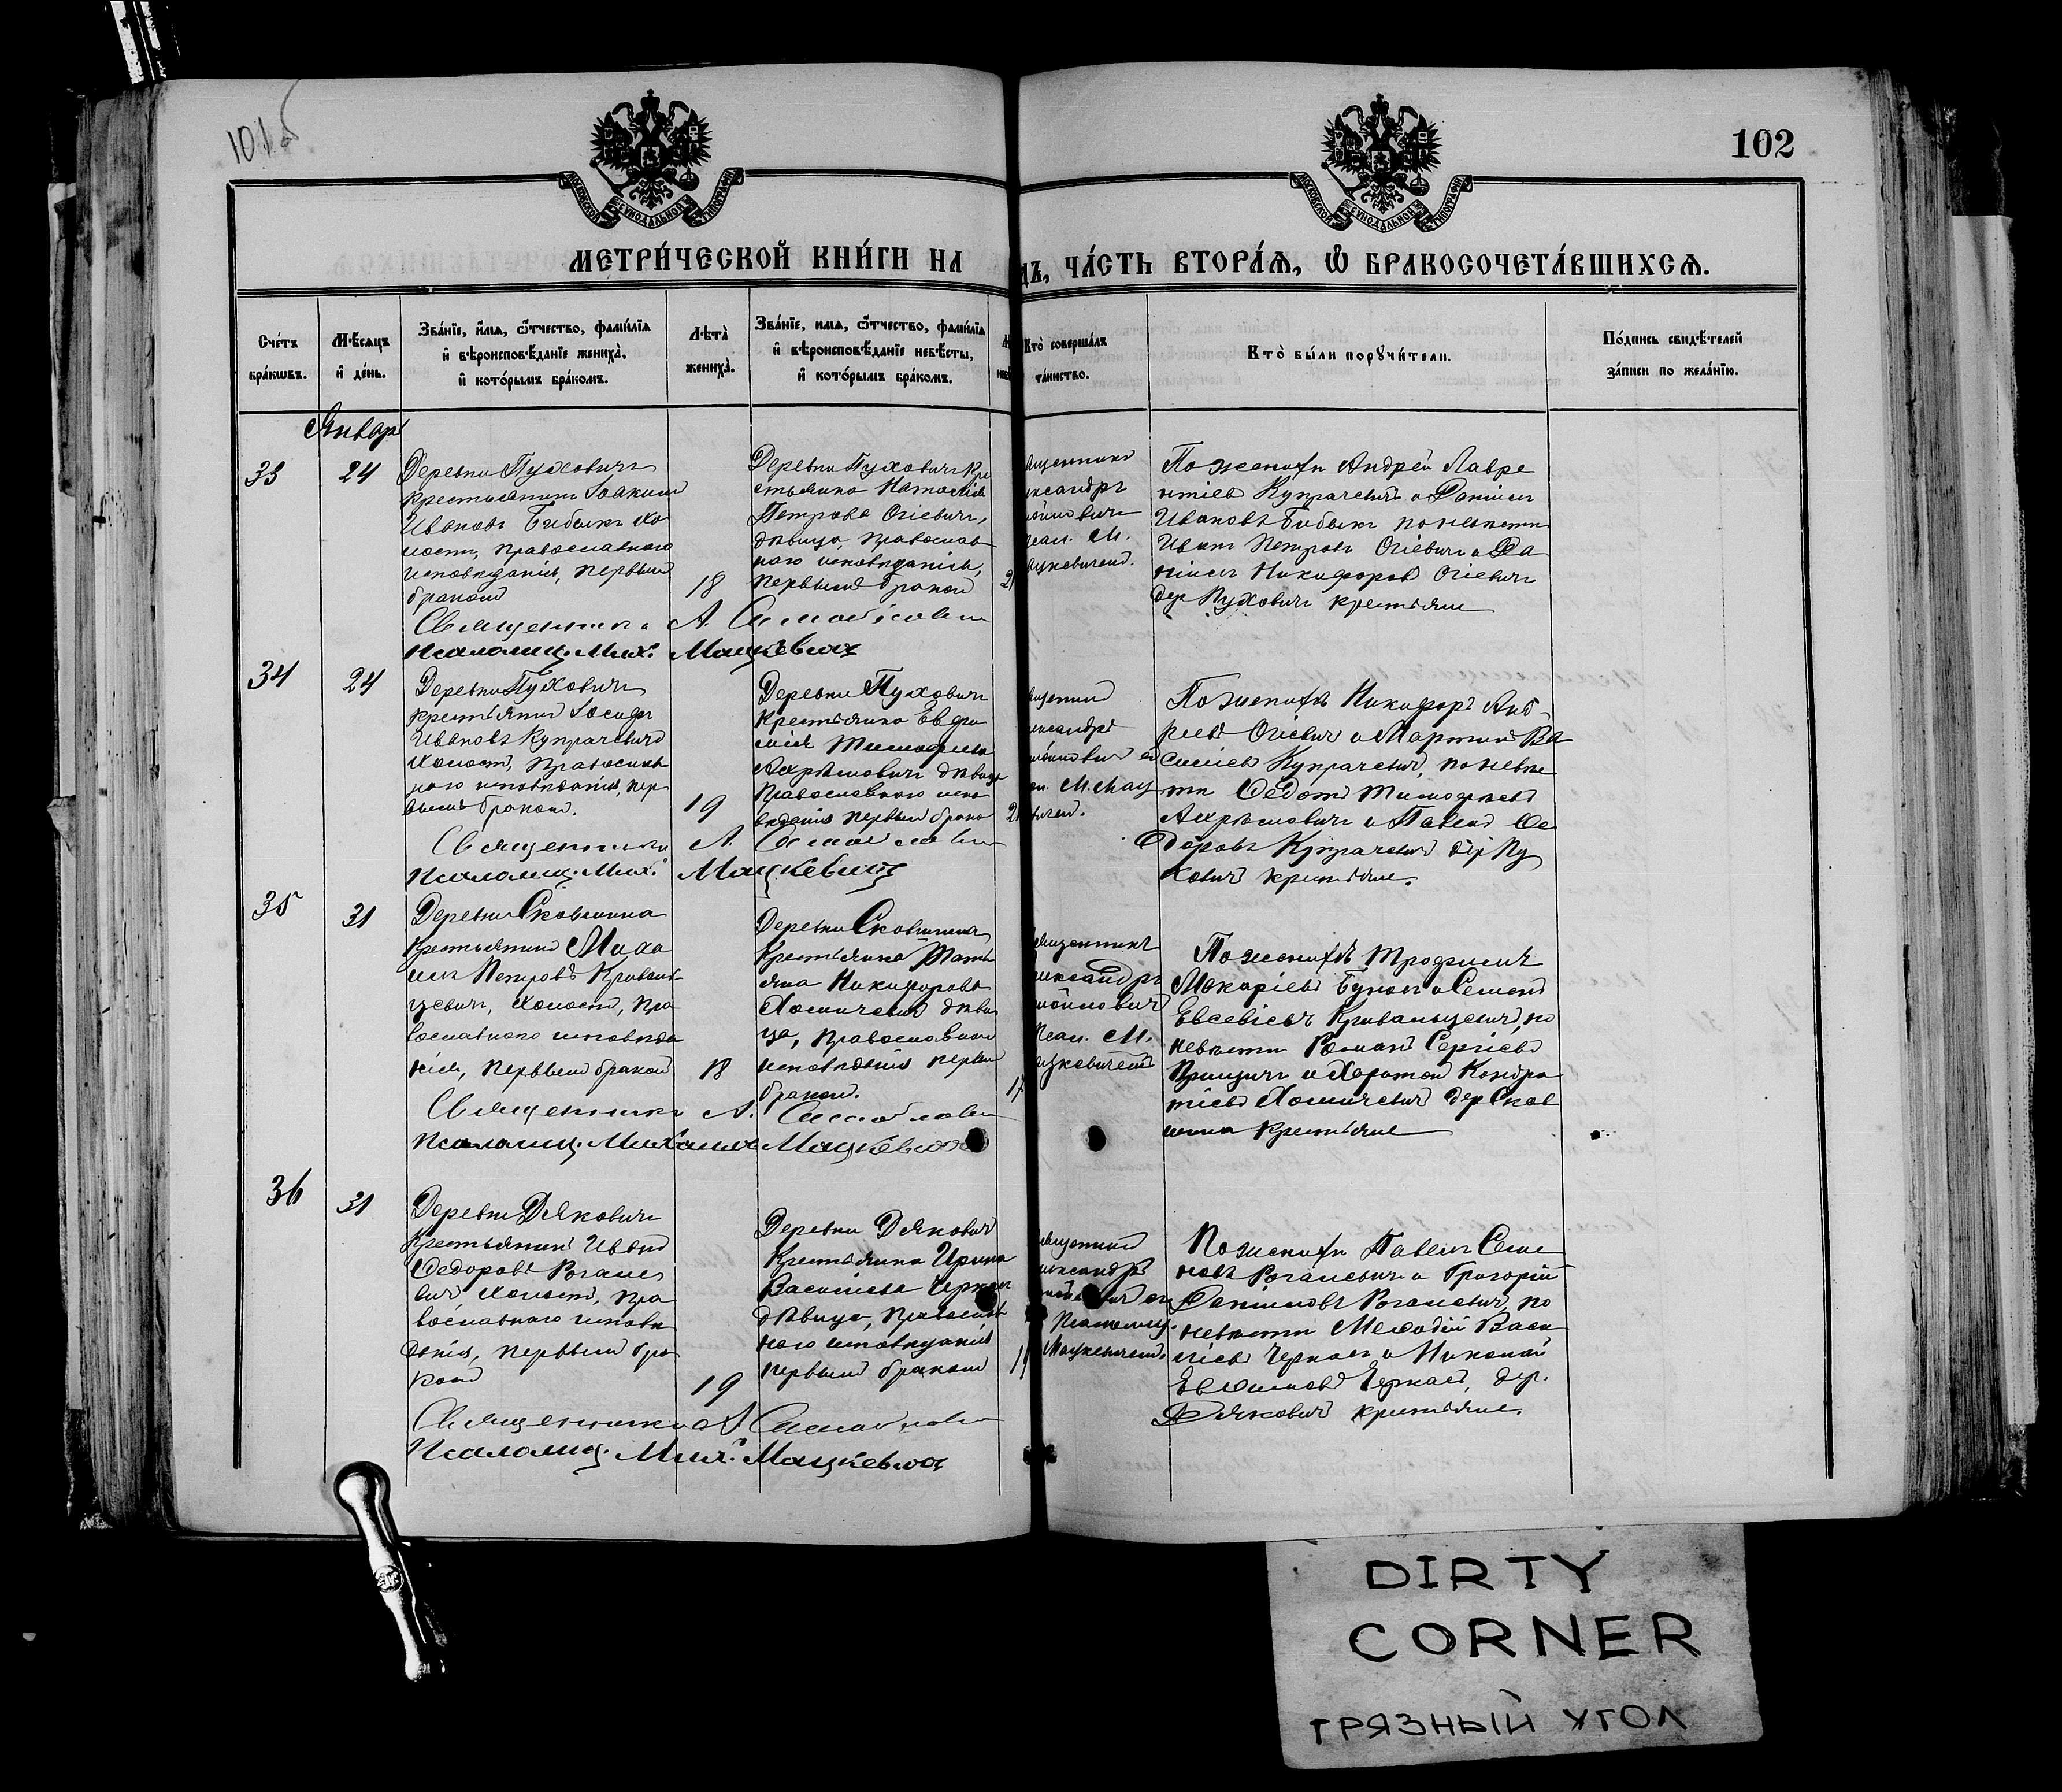 101 об
102
МОСКОВСКОЙ СѴНОДАЛЬНОЙ ТИПОГРАФІИ
МОСКОВСКОЙ СѴНОДАЛЬНОЙ ТИПОГРАФІИ
МЕТРИ́ЧЕСКОЙ КНИ́ГИ НА
ДЪ, ЧА́СТЬ ВТОРА́Ѧ, Ѡ БРАКОСОЧЕТА́ВШИХСѦ.
Сче́тъ
бра́кѡвъ.
Мѣ́сѧцъ
и҆ де́нь.
Зва́нїе, и҆́мѧ, ѻ҆́тчество, фами́лїѧ
и҆ вѣроисповѣ́данїе жениха̀,
и҆ кото́рымъ бра́комъ.
Лѣта̀
жениха̀.
Зва́нїе, имѧ, ѻ҆́тчество, фами́лїѧ
и҆ вѣроисповѣ́данїе невѣ́сты,
и҆ кото́рымъ бра́комъ.
Кто̀ соверша́лъ
та́инство.
Кто̀ бы́ли порꙋчи́тели.
По́дпись свидѣ́телей
за́писи по жела́нїю.
Январь
33
24
Деревни Пуховичъ
крестьянинъ Іоакимъ
Ивановъ Бибикъ хо
лостъ, православнаго
исповѣданія, первымъ
бракомъ
18
Деревни Пуховичъ кре
стьянка Наталія
Петрова Огіевичъ,
дѣвица, православ
наго исповѣданія,
первымъ бракомъ
По женихѣ Андрей Лавре
нтіевъ Купрачевичъ и Даніилъ
Ивановъ Бибикъ по невѣстѣ
Иванъ Петровъ Огіевичъ и Да
ніилъ Никифоровъ Огіевичъ
дер Пуховичъ крестьяне
Священникъ А. Самойловичъ
Псаломщ. Мих. Мацкевичъ
34
24
Деревни Пуховичъ
крестьянинъ Іосифъ
Ивановъ Купрачевичъ
холостъ, православ
наго исповѣданія, пер
вымъ бракомъ.
19
Деревни Пуховичъ
крестьянка Евфи
мія Тимофеева
Ахрѣмовичъ дѣвица
православнаго испо
вѣданія первымъ брако
По женихѣ Никифоръ Анд
реевъ Огіевичъ и Мартинъ Ва
силіевъ Купрачевичъ, по невѣс
тѣ Ѳедотъ Тимофеевъ
Ахрѣмовичъ и Павелъ Ѳе
доровъ Купрачевичъ дер Пу
ховичъ крестьяне.
Священникъ А. Самойловичъ
Псаломщ. Мих. Мацкевичъ
35
31
Деревни Сковшина
крестьянинъ Миха
илъ Петровъ Криваль
цевичъ, холостъ, пра
вославнаго исповѣда
нія, первымъ бракомъ
18
Деревни Сковшина
крестьянка Тать
яна Никифорова
Хомичевичъ дѣви
ца, православнаго
исповѣданія первым
бракомъ.
17
По женихѣ Трофимъ
Макаріевъ Букач и Семенъ
Евсевіевъ Кривальцевичъ, по
невѣстѣ Романъ Сергіевъ
Прищичъ и Харитонъ Кондра
тіевъ Хомичевичъ дер Сков
шина крестьяне
Священникъ А. Самойловичъ
Псаломщ. Михаилъ Мацкевичъ
36
31
Деревни Дяковичъ
крестьянинъ Иванъ
Ѳедоровъ Рогале
вичъ холостъ, пра
вославнаго исповѣ
данія, первымъ бра
комъ
19
Деревни Дяковичъ
крестьянка Ирина
Василіева Черкас
дѣвица, православ
наго исповѣданія
первымъ бракомъ
По женихѣ Павелъ Семе
новъ Рогалевичъ и Григорій
Даніиловъ Рогалевичъ, по
невѣстѣ Меѳодій Васи
ліевъ Черкас и Николай
Евѳимовъ Черкас, дер.
Дяковичъ крестьяне.
Священникъ А. Самойловичъ
Псаломщ. Мих. Мацкевичъ
DIRTY
CORNER
ГРЯЗНЫЙ УГОЛ